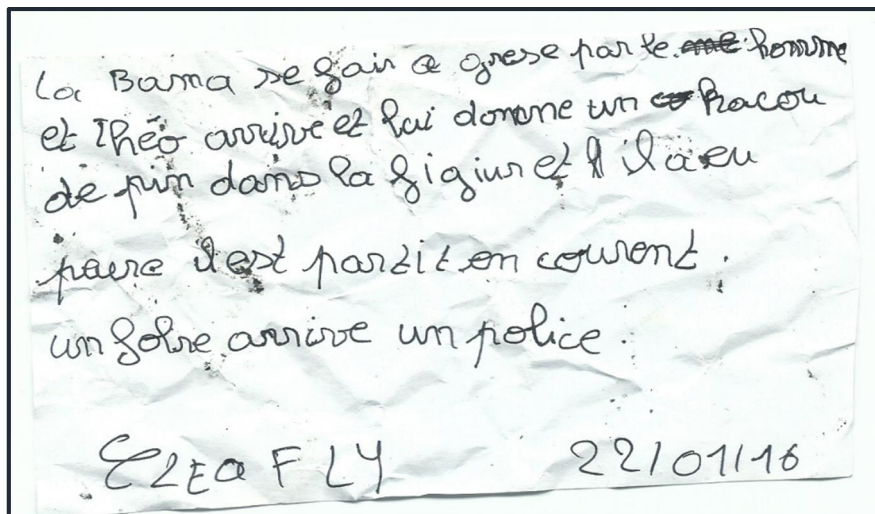 La Bama se fair a grese par le homme
et Théo arrive et lui donne un racou
de pin dans la figiur et il a eu
peure il est partit en courent.
un folre arrive un police.
FLY 22/01/16